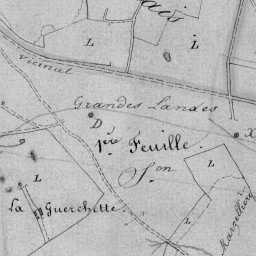 ais
L
L
Vicinal
Grandes Landes
D
X
1ère Feuille.
L
Son
L
La Guerchette.
L